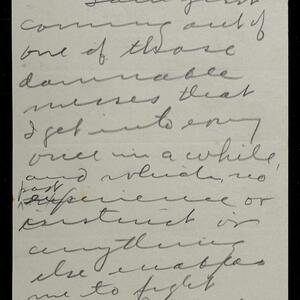 I am just
coming out of
one of those
damnable
messes that
I get into every
once in a while,
and which no
past
experience or
instinct or
anything
else enables
me to fight